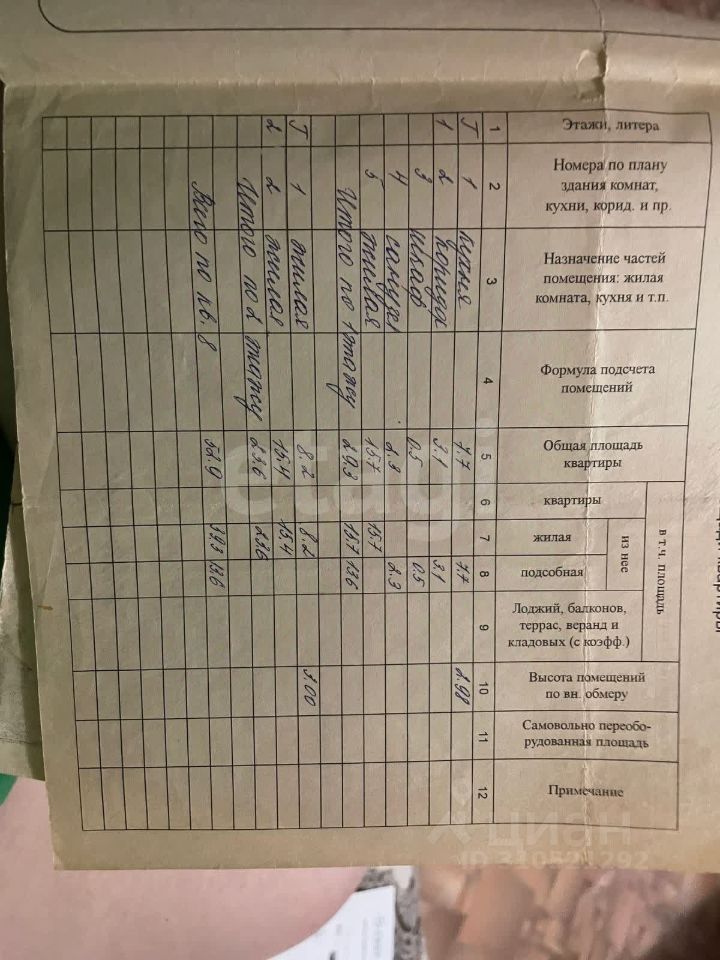 Этажи, литера
Номера по плану
здания комнат,
кухни, корид. и пр.
Назначение частей
помещения: жилая
комната, кухня и т.п.
Формула подсчета
помещений
Общая площадь
квартиры
в т.ч. площадь
квартиры
из нее
жилая
подсобная
Лоджий, балконов,
террас, веранд и
кладовых (с коэфф.)
Высота помещений
по вн. обмеру
Самовольно переобо-
рудованная площадь
Примечание
1 2 3 4 5 6 7 8 9 10 11 12
Г 1 кухня 7.7 7.7 2.98
1 2 коридор 3.1 3.1
3 шкаф 0.5 0.5
4 санузел 2.3 2.3
5 жилая 15.7 15.7
Итого по 1 этажу 29.3 15.7 13.6
Г 1 жилая 8.2 8.2 3.00
2 2 жилая 15.4 15.4
Итого по 2 этажу 23.6 23.6
Всего по кв. 8 52.9 39.3 13.6
etagi
циан
ID 310521292